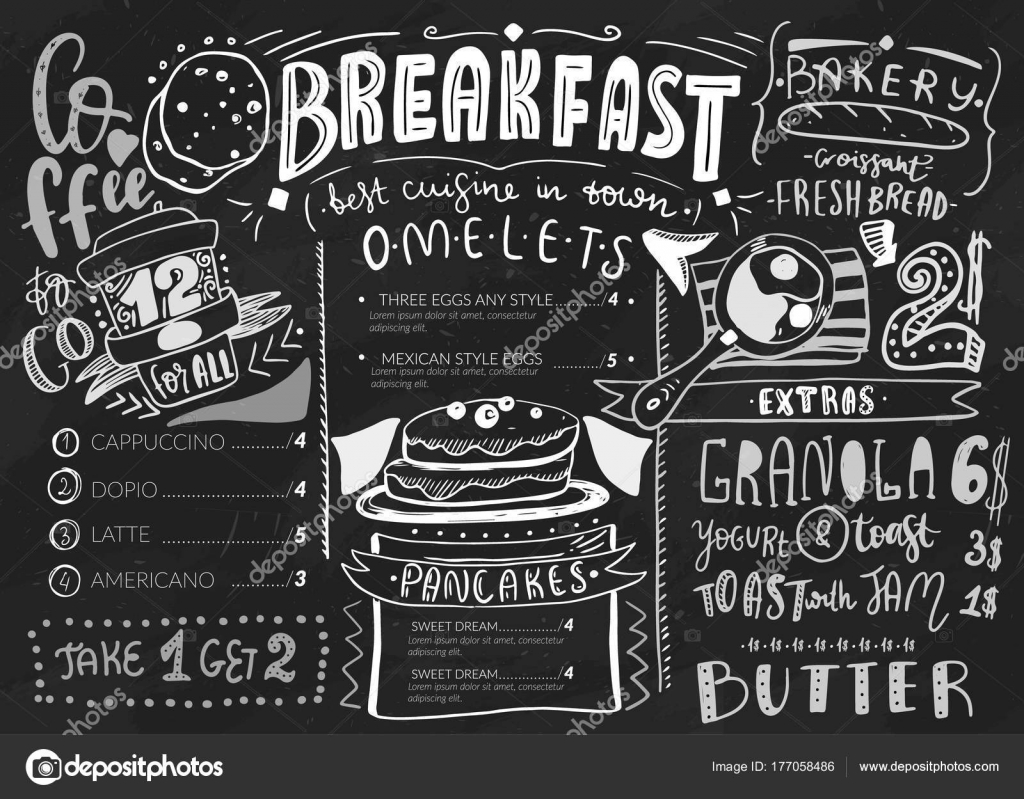 Coffee
to GO
12
for ALL
1 CAPPUCCINO............/4
2 DOPIO......................./4
3 LATTE ......................./5
4 AMERICANO ............/3
TAKE 1 GET 2
BREAKFAST
best cuisine in town
O.M.E.L.E.T.S
• THREE EGGS ANY STYLE........../4 •
Lorem ipsum dolor sit amet, consectetur
adipiscing elit.
• MEXICAN STYLE EGGS ........../5 •
Lorem ipsum dolor sit amet, consectetur
adipiscing elit.
·PANCAKES·
SWEET DREAM.............../4
Lorem ipsum dolor sit amet, consectetur
adipiscing elit.
SWEET DREAM.............../4
Lorem ipsum dolor sit amet, consectetur
adipiscing elit.
·BAKERY·
-Croissant-
-FRESH BREAD-
2$
·EXTRAS·
GRANOLA 6$
YOGURT & toast 3$
TOAST with JAM 1$
·1$·1$·1$·1$·1$·1$·1$·1$
BUTTER
depositphotos
Image ID: 177058486
www.depositphotos.com